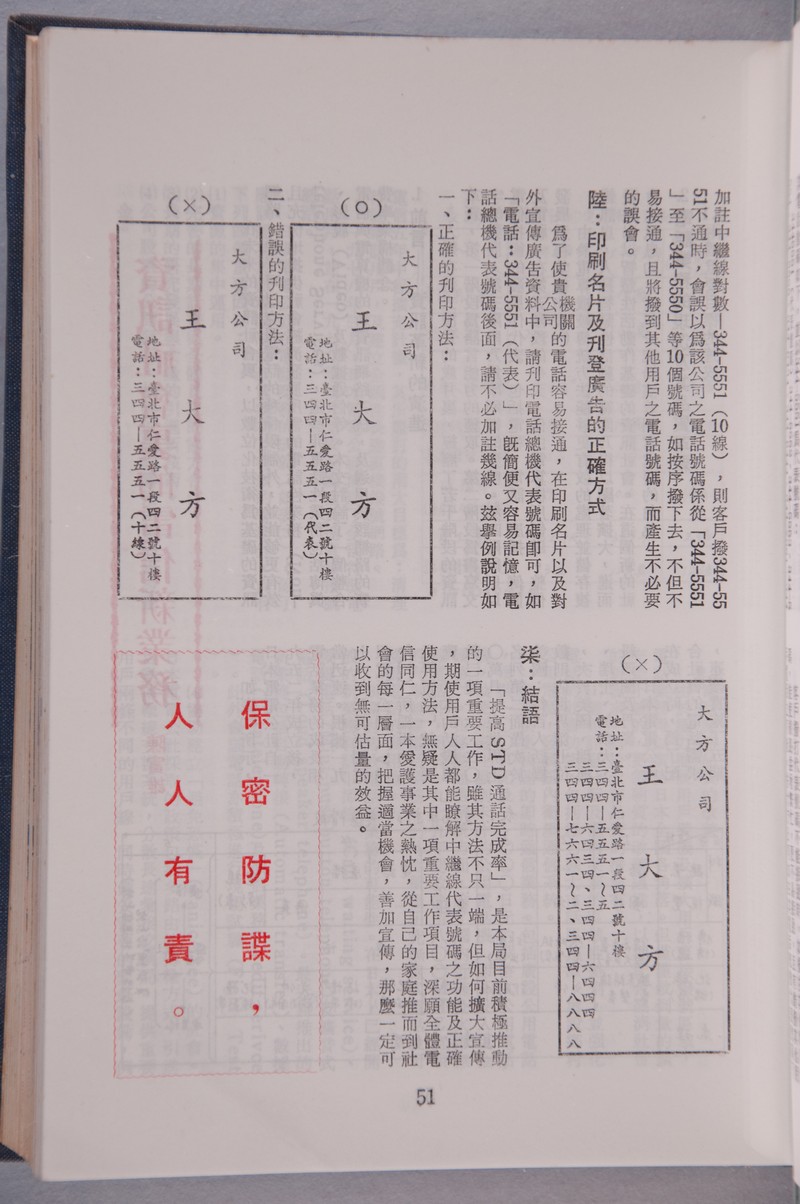 加註中繼線對數—344-5551（10線），則客戶撥344-55
51不通時，會誤以爲該公司之電話號碼係從「344-5551
」至「344-5550」等10個號碼，如按序撥下去，不但不
易接通，且將撥到其他用戶之電話號碼，而產生不必要
的誤會。
陸：印刷名片及刊登廣告的正確方式
爲了使貴機關公司的電話容易接通，在印刷名片以及對
外宣傳廣告資料中，請刋印電話總機代表號碼卽可，如
「電話：344-5551（代表）」，旣簡便又容易記憶，電
話總機代表號碼後面，請不必加註幾線。玆擧例說明如
下：
一、正確的刋印方法：
（○）
大方公司
王大方
地址：臺北市仁愛路一段四二號十樓
電話：三四四—五五五一（代表）
二、錯誤的刋印方法：
（×）
大方公司
王大方
地址：臺北市仁愛路一段四二號十樓
電話：三四四—五五五一（十線）
（×）
大方公司
王大方
地址：臺北市仁愛路一段四二號十樓
電話：三四四—五五五一～五
三四四—六四三四、三四四—六四四四
三四四—七六六一～二、三四四—八八八八
柒：結語
「提高STD通話完成率」，是本局目前積極推動
的一項重要工作，雖其方法不只一端，但如何擴大宣傳
，期使用戶人人都能瞭解中繼線代表號碼之功能及正確
使用方法，無疑是其中一項重要工作項目，深願全體電
信同仁，一本愛護事業之熱忱，從自己的家庭推而到社
會的每一層面，把握適當機會，善加宣傳，那麼一定可
以收到無可估量的效益。
保密防諜，
人人有責。
51